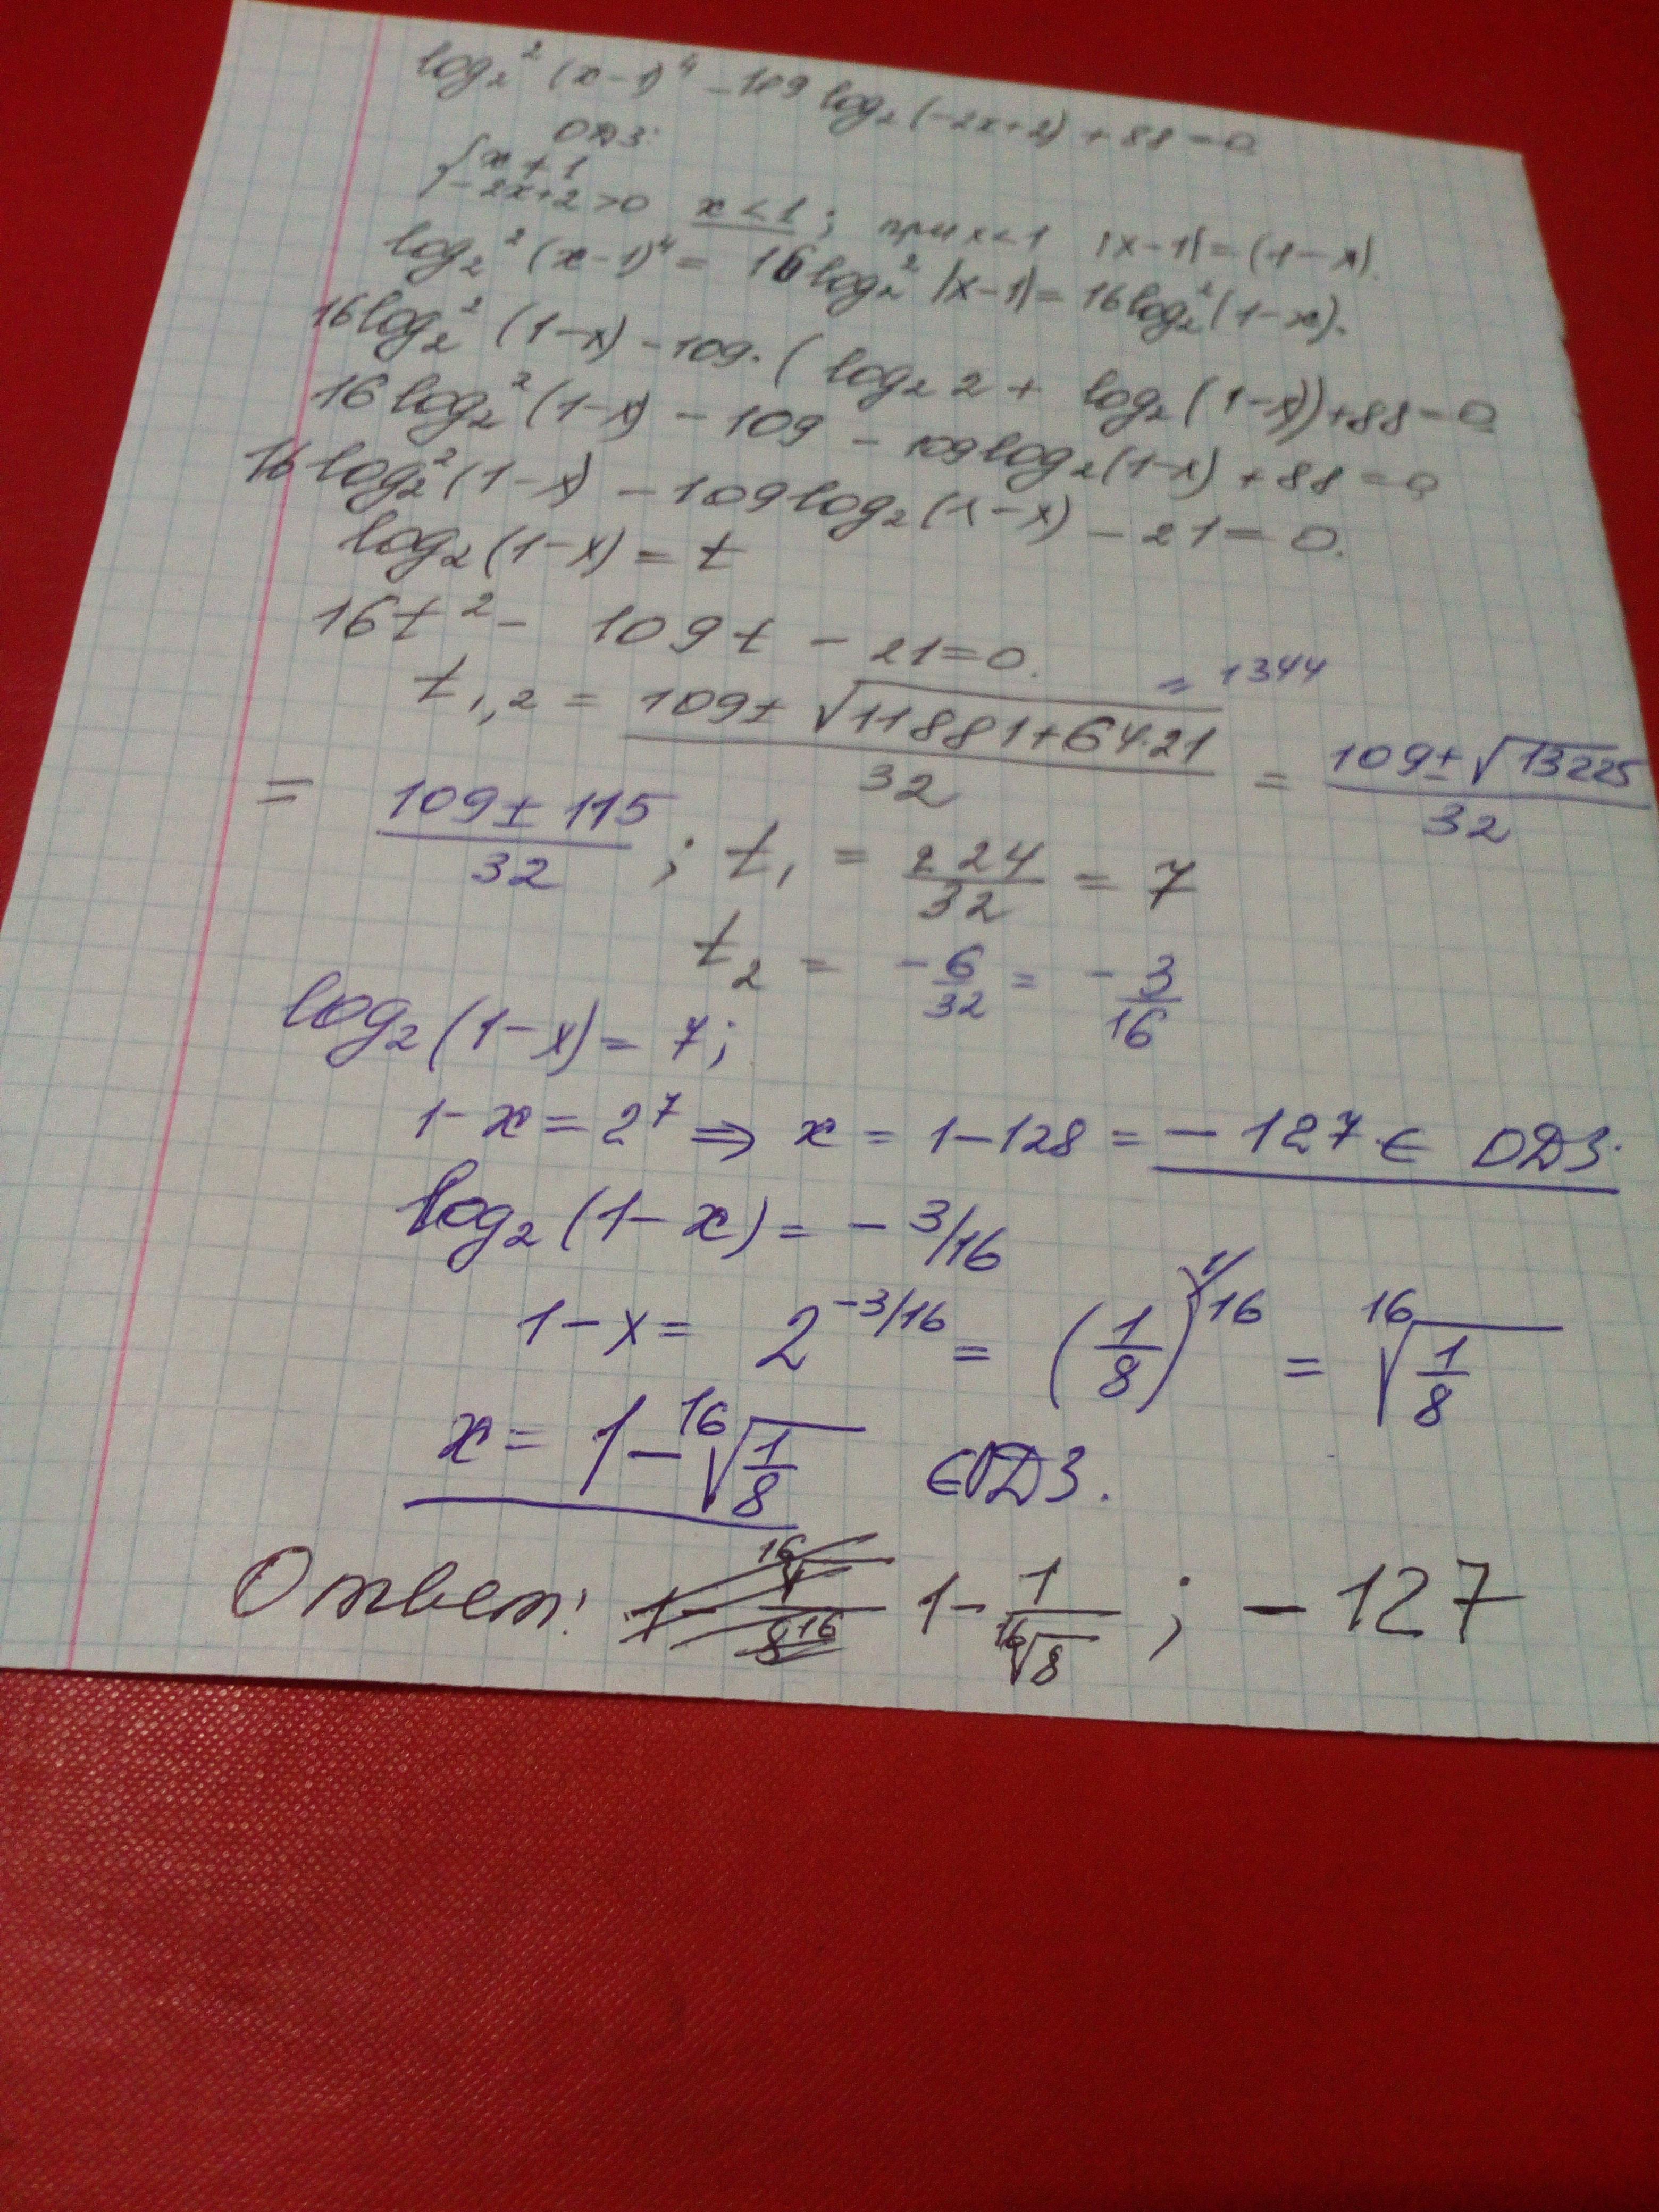 log₂² (x-1)⁴ - 109 log₂(-2x+2) + 88 = 0
ОДЗ:
{ x ≠ 1
-2x+2 > 0 x < 1 ; при x < 1 |x-1| = (1-x).
log₂² (x-1)⁴ = 16 log₂² |x-1| = 16 log₂² (1-x).
16 log₂² (1-x) - 109 · ( log₂ 2 + log₂ (1-x)) + 88 = 0
16 log₂² (1-x) - 109 - 109 log₂ (1-x) + 88 = 0
16 log₂² (1-x) - 109 log₂ (1-x) - 21 = 0.
log₂ (1-x) = t
16t² - 109t - 21 = 0.
= 1344
t₁,₂ = (109 ± √(11881 + 64·21))/32 = (109 ± √13225)/32
= (109 ± 115)/32 ; t₁ = 224/32 = 7
t₂ = -6/32 = -3/16
log₂ (1-x) = 7;
1-x = 2⁷ ⇒ x = 1-128 = -127 ∈ ОДЗ.
log₂ (1-x) = -3/16
1-x = 2^(-3/16) = (1/8)^(1/16) = ¹⁶√(1/8)
x = 1 - ¹⁶√(1/8) ∈ ОДЗ.
Ответ: 1 - 1/¹⁶√8 ; -127